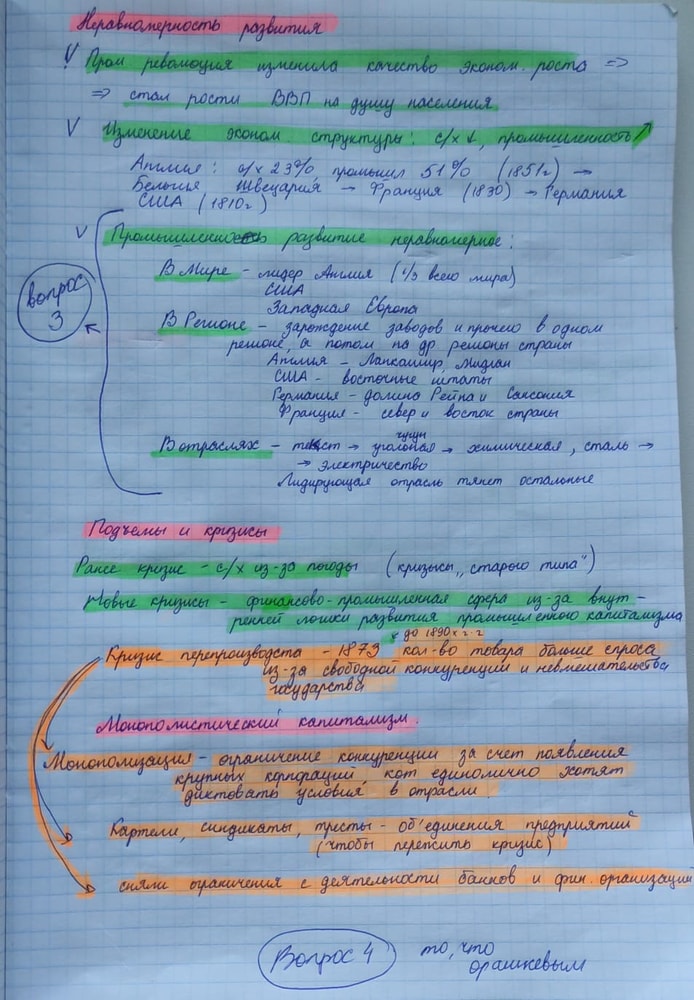 Неравномерность развития
V Пром революция изменила качество эконом. роста =>
=> стал рости ВВП на душу населения
V Изменение эконом. структуры: с/х ↓, промышленность ↗
Англия: с/х 23%, промышл 51% (1851г) →
Бельгия Швецария → Франция (1830) → Германия
США (1810г)
V Промышленность развитие неравномерное:
Вопрос 3
В Мире - лидер Англия (1/3 всего мира)
США
Западная Европа
В Регионе - зарождение заводов и прочего в одном
регионе, а потом на др регионы страны
Англия - Ланкашир, Мидлан
США - восточные штаты
Германия - долина Рейна и Саксония
Франция - север и восток страны
В отраслях - текст → угольная чугун → химическая, сталь →
→ электричество
Лидирующая отрасль тянет остальные
Подъемы и кризисы
Ранее кризис - с/х из-за погоды (кризысы „старого типа")
Новые кризисы - финансово-промышленная сфера из-за внут-
ренней логики развития промышленного капитализма
до 1890х г.г
Кризис перепроизводста - 1873 кол-во товара больше спроса
из-за свободной конкуренции и невмешательства
государства
Монополистический капитализм.
Монополизация - ограничение конкуренции за счет появления
крупных корпораций, кот единолично хотят
диктовать условия в отрасли.
Картели, синдикаты, тресты - об'единения предприятий
(чтобы пережить кризис)
сняли ограничения с деятельности банков и фин. организации
Вопрос 4 то, что
оранжевым